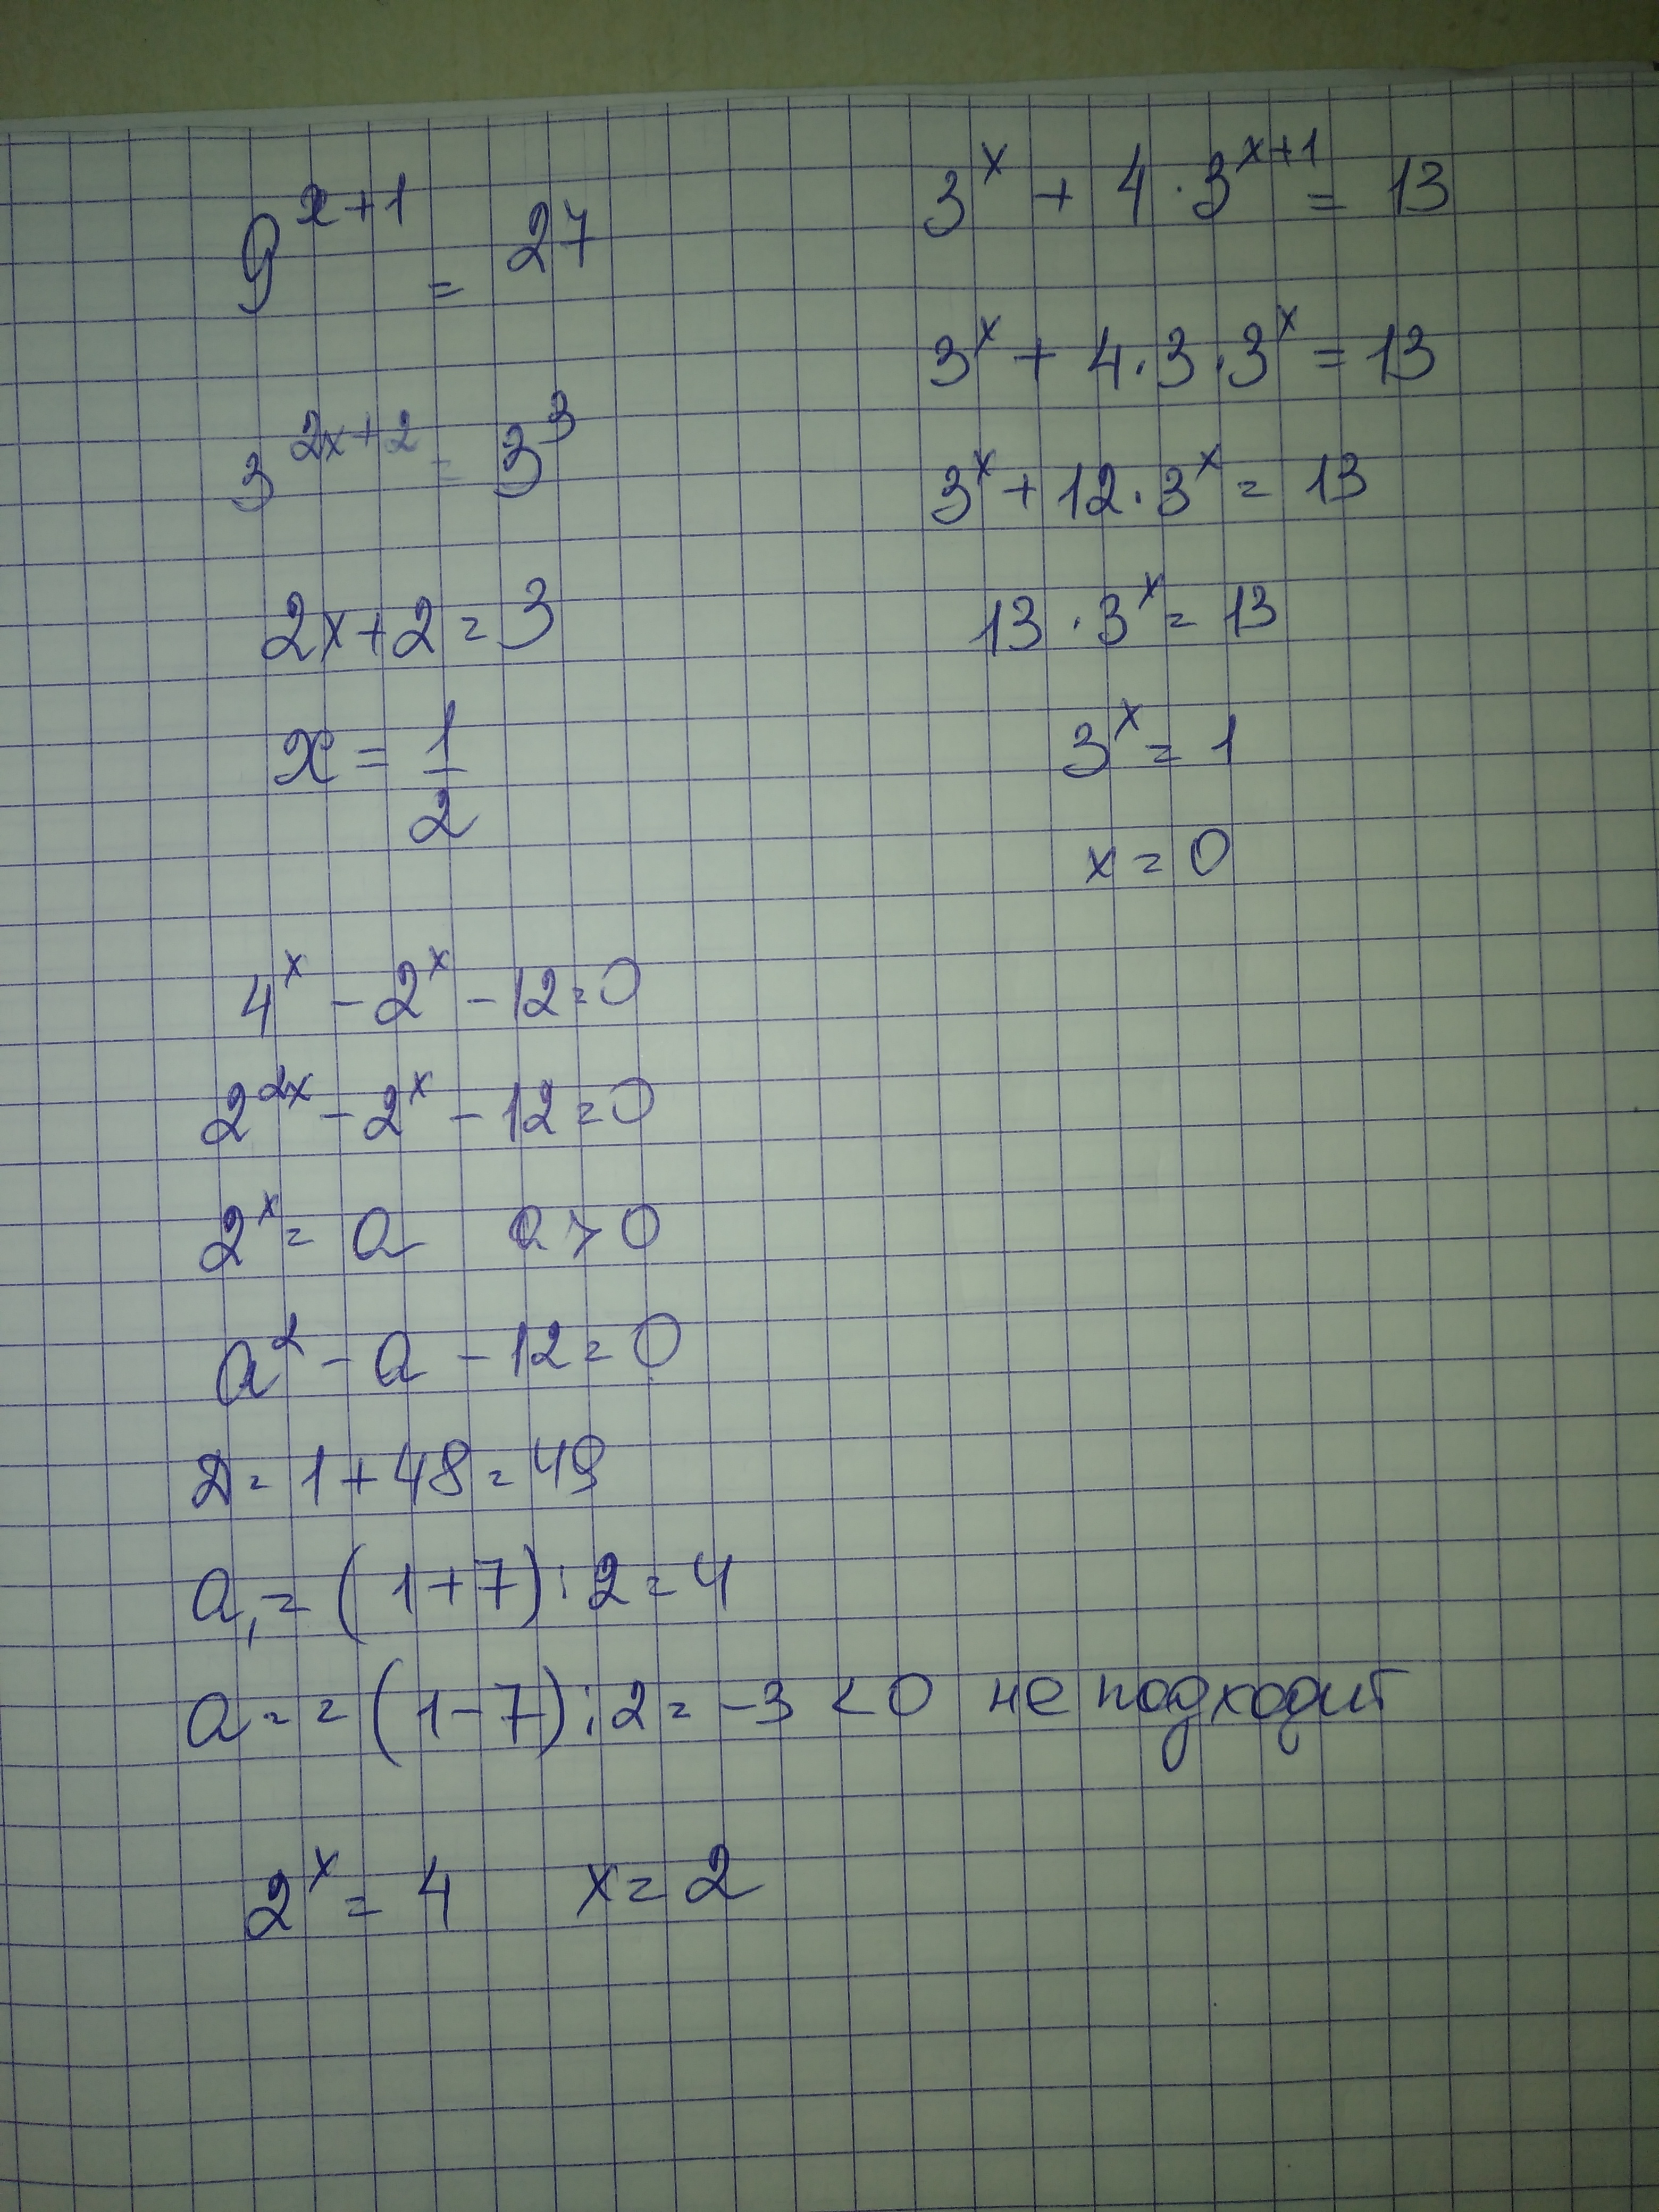 9^{x+1} = 27
3^{2x+2} = 3^3
2x+2=3
x = 1/2
3^x + 4·3^{x+1} = 13
3^x + 4·3·3^x = 13
3^x + 12·3^x = 13
13·3^x = 13
3^x = 1
x = 0
4^x - 2^x - 12 = 0
2^{2x} - 2^x - 12 = 0
2^x = a a > 0
a^2 - a - 12 = 0
D = 1 + 48 = 49
a_1 = (1+7) : 2 = 4
a = = (1-7) : 2 = -3 < 0 не подходит
2^x = 4 x = 2